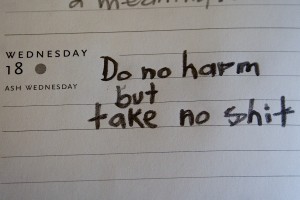 a meaning.
WEDNESDAY
18
ASH WEDNESDAY
Do no harm
but
take no shit